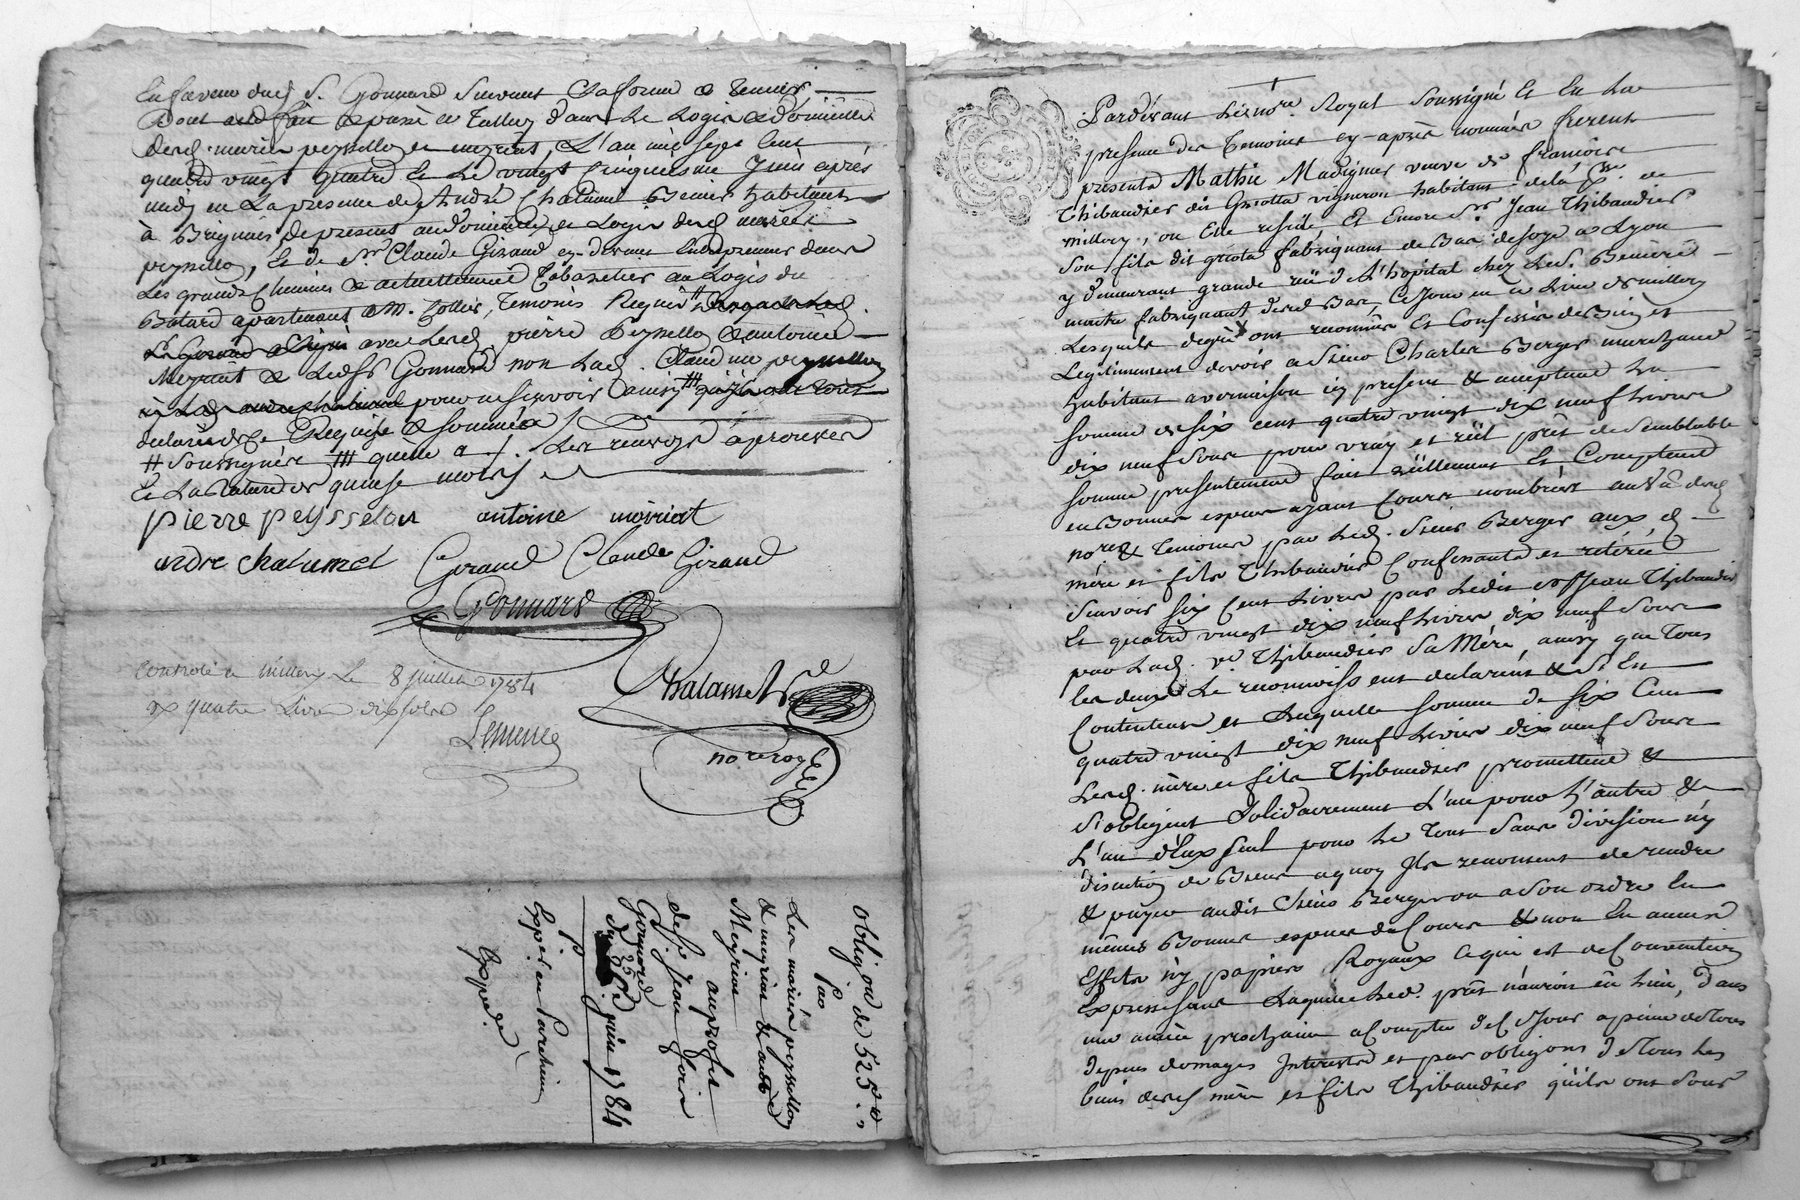 En faveur dud S. Gonnard suivant la forme
Dont acte fait & passé a Talluy dans Le Logis & domicille
desd. mariés peysellon et meyriat, L'an mil sept cent
quatre vingt quatre Et Le vingt cinquiesme Juin après
midy en La presence de André Chalumet habitant
à Brignais de present au domicille et Logis desd mariés
peyssellon, Et de Sr. Claude Giraud cy-devant Entrepreneur dans
Les grands Chemins & actuellement Cabaretier au Logis du
Batard apartenant a M. Temoins Requis #
avec Lesd. pierre Peyssellon & antoine
Meyriat & Ledit Sr Gonnard non Lad. Claudine peyssellon
pour ne sçavoir ainsy
declaré de ce Requise & sommée
# Soussignés ## quelle a /. Les renvois aprouvés
Et La rature de quinse mots
pierre peysselon antoine meiriat
andre chalumel Giraud Claude Giraud
Gonnard
Chalamel
no.re royal
Controlé a millery Le 8 juillet 1784
quatre Livres dix sols
obligon de 525
par
Les mariés peyssellon
& meyriat & autre
Meyriat
au profit
de Sr. Jean
Gonnard
Du 25 juin 1784
Expédié en Parchemin
Expédié
Pardevant Le no.re Royal soussigné Et En La
presence des Temoins cy-après nommés furent
presents Mathie Madignier veuve de françois
Thibaudier dit Griotta vigneron habitant de la psse. de
millery, ou Elle reside, Et Encore Sr. Jean Thibaudier
son fils dit griota fabriquant de Bas de soye a Lyon
y demeurant grande rüe de L'hopital chez Led. S.
maitre fabriquant desd Bas, Ce Jour en ce Lieu de millery
Lesquels degré ont reconnus Et Confessés de Bien et
Legitimement devoir a Sieur Charles Berger marchand
habitant a vernaison icy present & acceptant La
somme de six cent quatre vingt dix neuf Livres
dix neuf sous pour vray et réel prêt de semblable
somme presentement fait réellement Et Comptent
en Bonnes especes ayant Cours nombrées au Vû desd
no.re & Temoins par Led. Sieur Berger aux d.
mère et fils Thibaudier Confessants et
sçavoir six Cent Livres par Ledit Sr Jean Thibaudier
Et quatre vingt dix neuf Livres dix neuf sous
par Lad. ve. Thibaudier sa Mére, ainsy que Tous
Les deux Le reconnoissent declarent & s'En
Contentent et Laquelle somme de six Cent
quatre vingt dix neuf Livres dix neuf sous
Lesd. mère et fils Thibaudier promettent &
s'obligent solidairement L'un pour L'autre &
L'un d'Eux seul pour Le Tout sans division ny
discution de Biens aquoy Ils renoncent de rendre
& payer audit Sieur Berger ou a son ordre En
mêmes Bonnes especes du Cours & non En aucuns
Effets ny papiers Royaux Ce qui est de Convention
Expresse sans Laquelle Led. prêt n'auroit eû Lieu, Dans
une année prochaine a Compter de Ce Jour a peine de Tous
depens domages Interests et par obligons de Tous Les
biens desd mère et fils Thibaudier quils ont sous